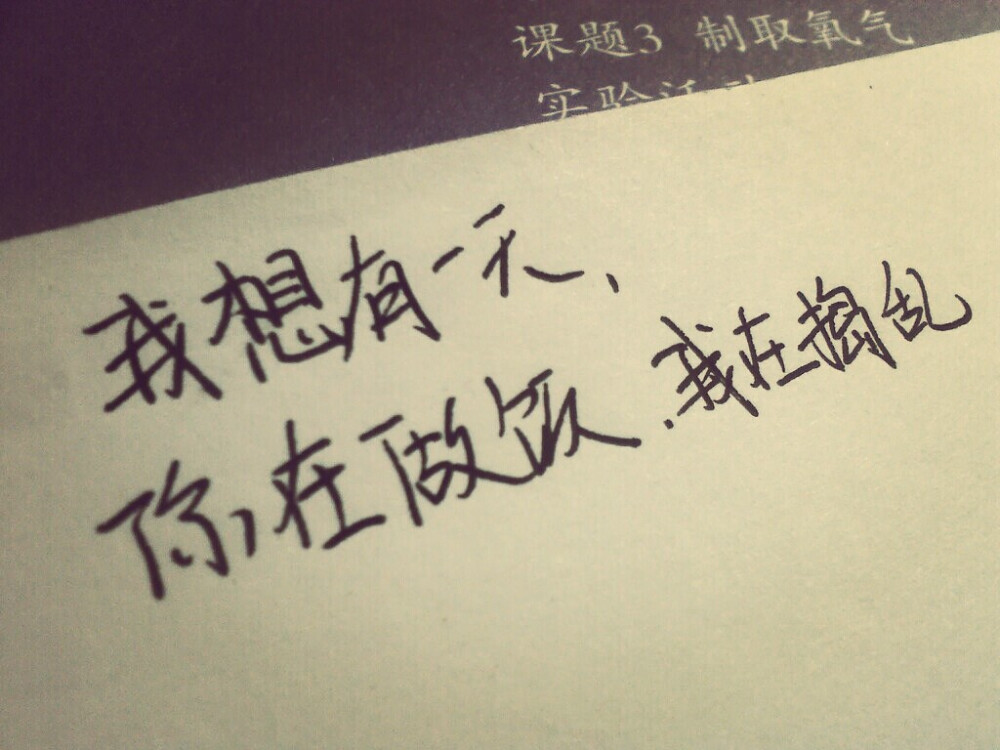 课题3 制取氧气
实验活动
我想有一天、
你在做饭、我在捣乱